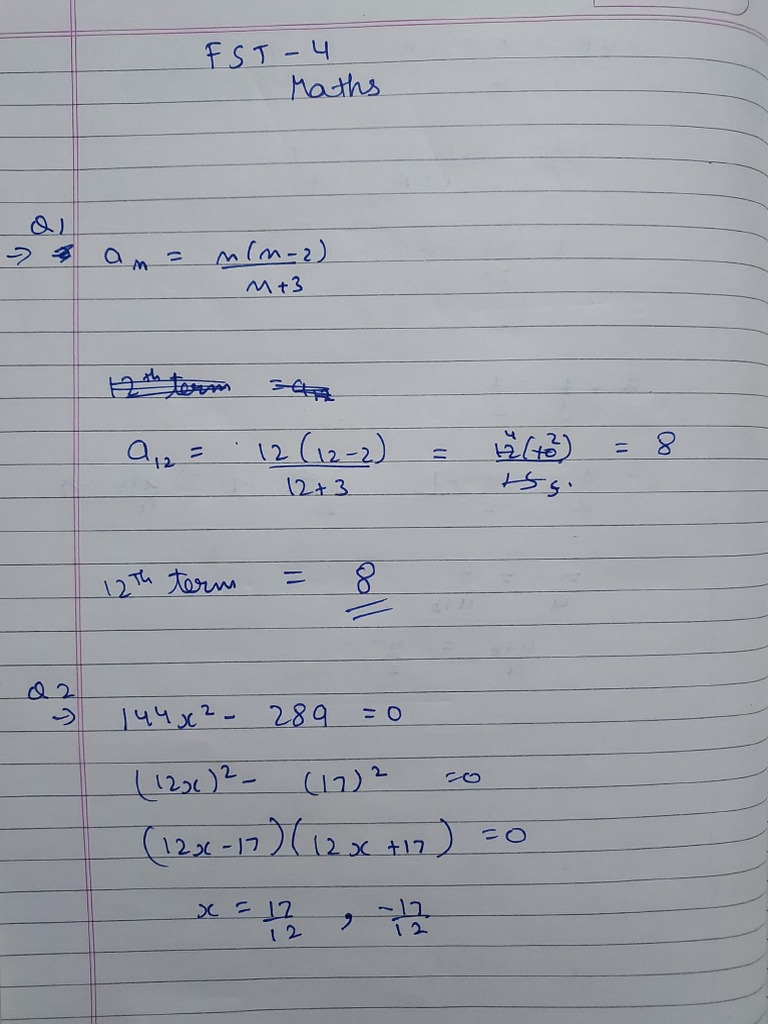 FST - 4
Maths
Q1
→ aₙ = n(n-2)/n+3
12th term = a₁₂
a₁₂ = 12(12-2)/12+3 = 12⁴(10²)/15 5. = 8
12Th term = 8
Q2
→ 144x² - 289 = 0
(12x)² - (17)² = 0
(12x - 17)(12x + 17) = 0
x = 17/12 , -17/12